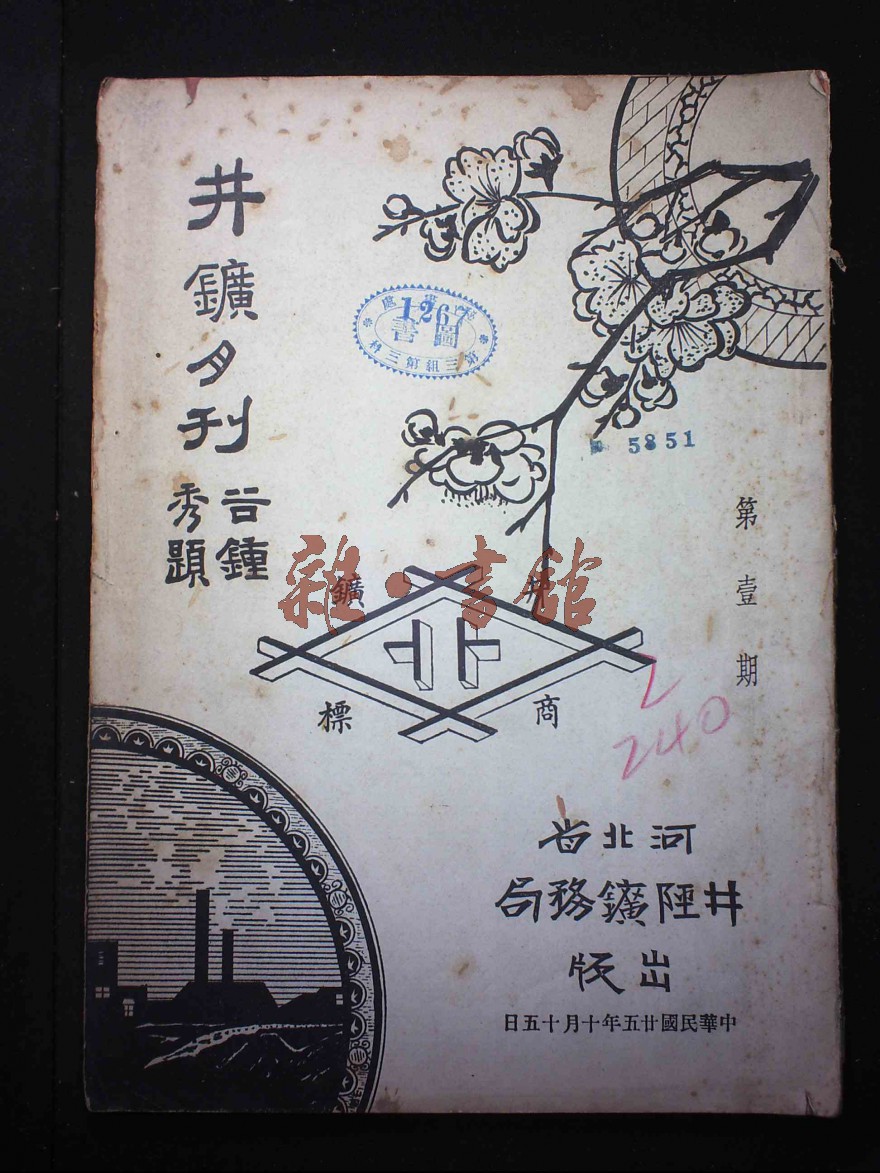 井鑛月刊
谷鍾
秀題
第壹期
井鑛
商標
雜·書館
1267
圖書
第三組第三科
5851
2
240
河北省
井陘鑛務局
出版
中華民國廿五年十月十五日